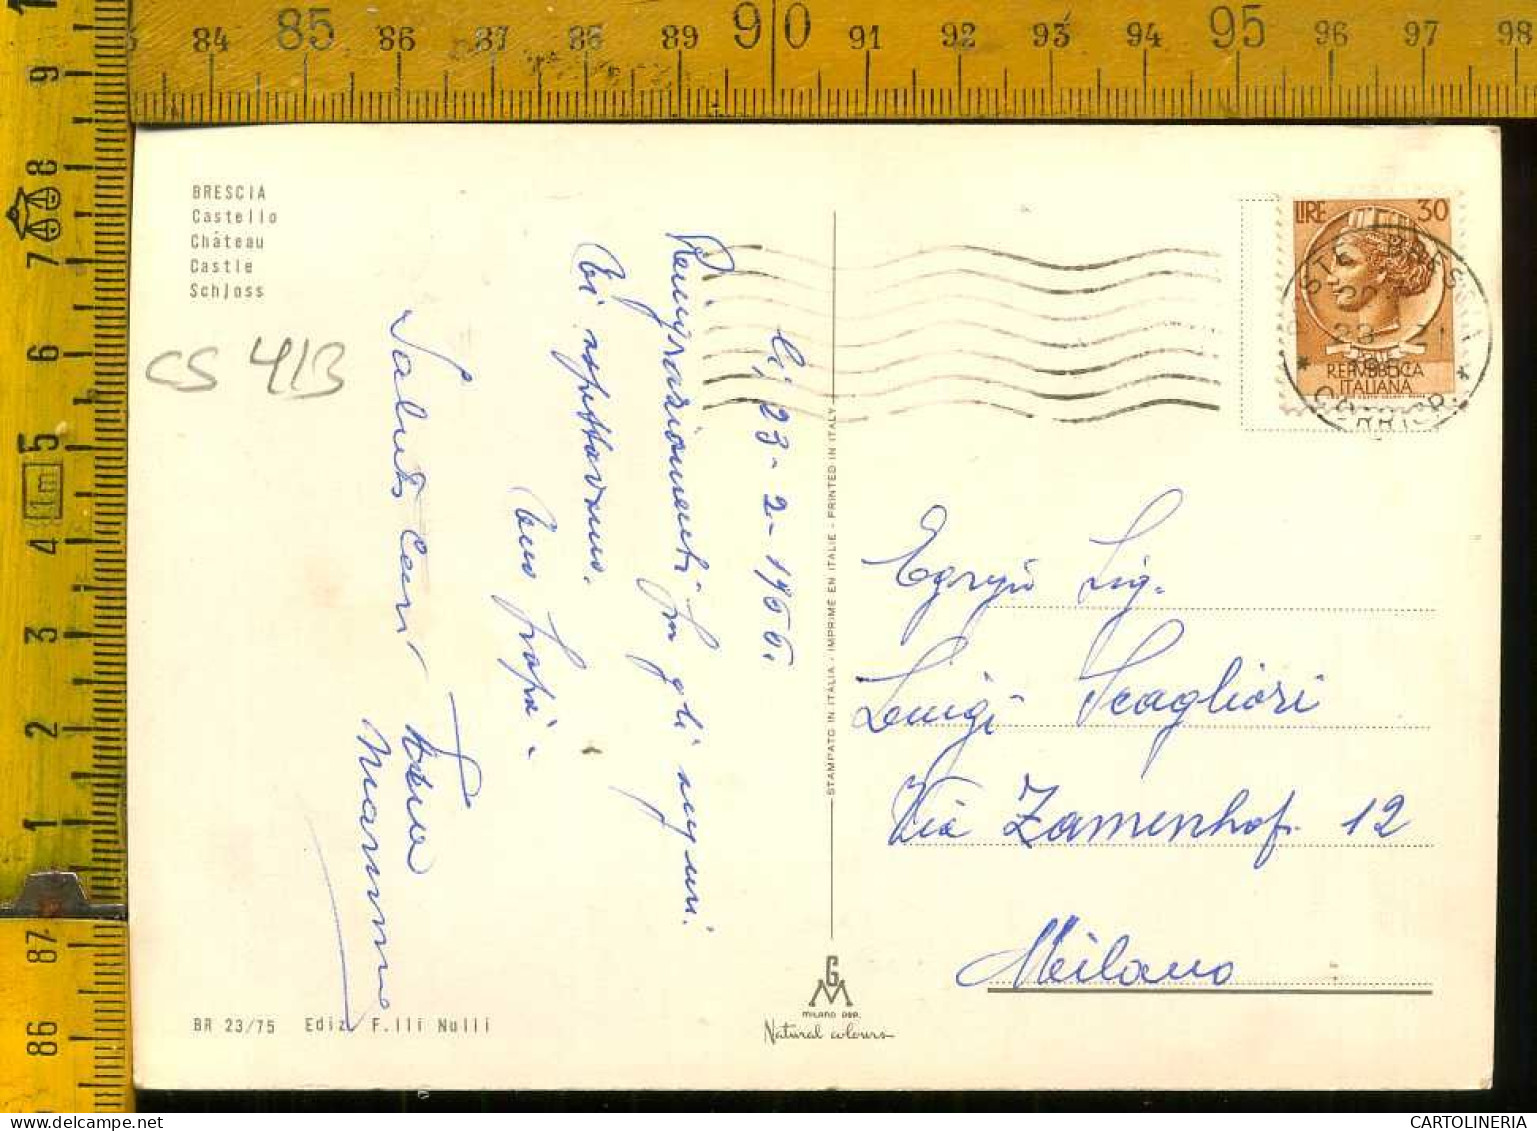 BRESCIA
Castello
Château
Castle
Schloss
CS 413
li, 23-2-1966.
Ringraziamenti per gli auguri
Vi aspettavamo.
tuo papà.
Saluti cari tua
Mamma
STAMPATO IN ITALIA - IMPRIME EN ITALIE - PRINTED IN ITALY
LIRE 30
REPUBBLICA
ITALIANA
Egregio Sig.
Luigi Scagliori
Via Zamenhof. 12
Milano
GM
MILANO DEP.
Natural colours
BR 23/75 Ediz. F.lli Nulli
84 85 86 87 88 89 90 91 92 93 94 95 96 97 98
9
8
7
6
5
1m
4
3
2
1
87
86
CARTOLINERIA